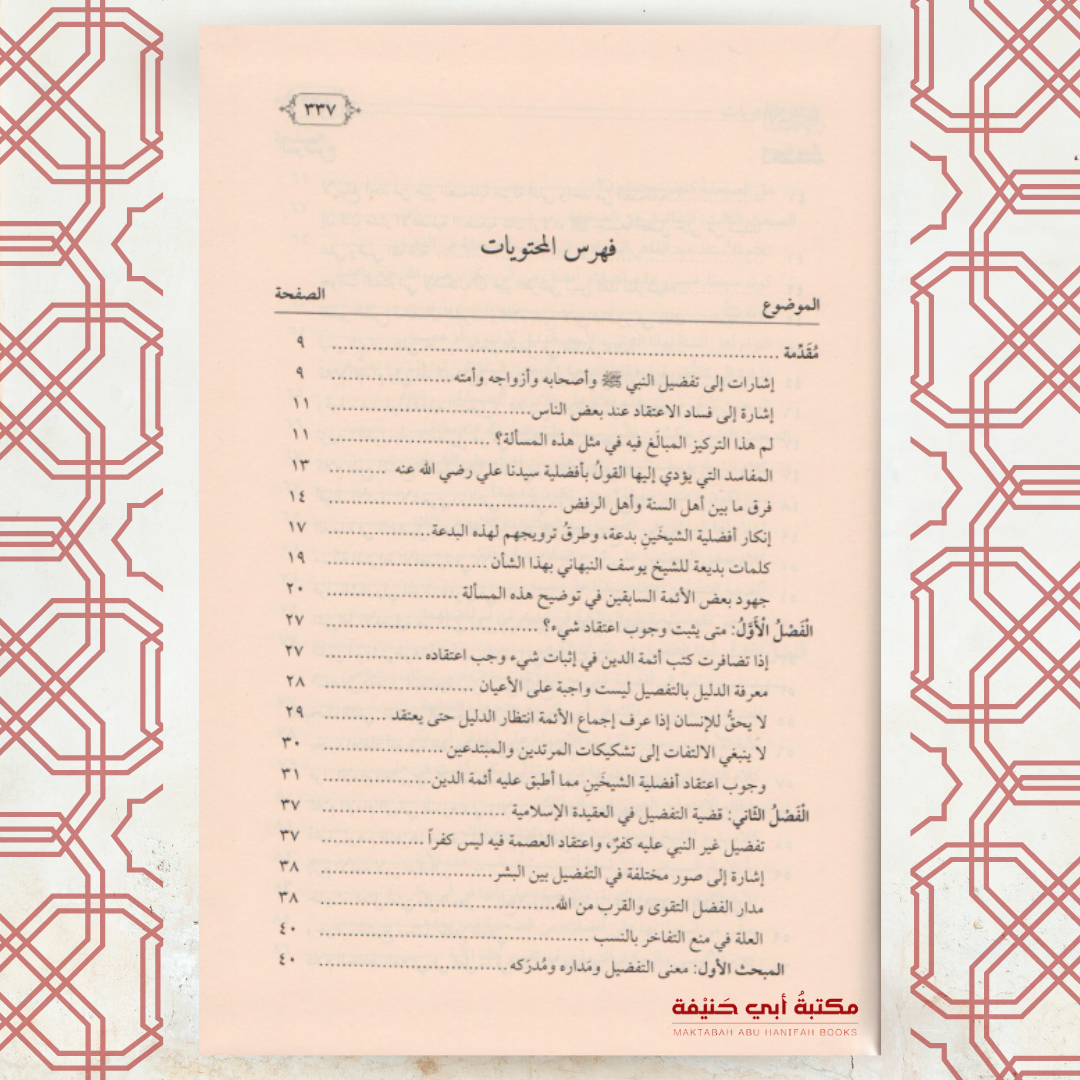 ٣٣٧
فهرس المحتويات
الموضوع الصفحة
مُقَدِّمة ........ ٩
إشارات إلى تفضيل النبي ﷺ وأصحابه وأزواجه وأمته ........ ٩
إشارة إلى فساد الاعتقاد عند بعض الناس ........ ١١
لم هذا التركيز المبالَغ فيه في مثل هذه المسألة؟ ........ ١١
المفاسد التي يؤدي إليها القولُ بأفضلية سيدنا علي رضي الله عنه ........ ١٣
فرق ما بين أهل السنة وأهل الرفض ........ ١٤
إنكار أفضلية الشيخَينِ بدعة، وطرقُ ترويجهم لهذه البدعة ........ ١٧
كلمات بديعة للشيخ يوسف النبهاني بهذا الشأن ........ ١٩
جهود بعض الأئمة السابقين في توضيح هذه المسألة ........ ٢٠
الْفَصْلُ الْأَوَّلُ: متى يثبت وجوب اعتقاد شيء؟ ........ ٢٧
إذا تضافرت كتب أئمة الدين في إثبات شيء وجب اعتقاده ........ ٢٧
معرفة الدليل بالتفصيل ليست واجبة على الأعيان ........ ٢٨
لا يحقُّ للإنسان إذا عرف إجماع الأئمة انتظار الدليل حتى يعتقد ........ ٢٩
لا ينبغي الالتفات إلى تشكيكات المرتدين والمبتدعين ........ ٣٠
وجوب اعتقاد أفضلية الشيخَينِ مما أطبق عليه أئمة الدين ........ ٣١
الْفَصْلُ الثّاني: قضية التفضيل في العقيدة الإسلامية ........ ٣٧
تفضيل غير النبي عليه كفرٌ، واعتقاد العصمة فيه ليس كفراً ........ ٣٧
إشارة إلى صور مختلفة في التفضيل بين البشر ........ ٣٨
مدار الفضل التقوى والقرب من الله ........ ٣٨
العلة في منع التفاخر بالنسب ........ ٤٠
المبحث الأول: معنى التفضيل ومَداره ومُدرَكه ........ ٤٠
مكتبةُ أبي حَنيْفة
MAKTABAH ABU HANIFAH BOOKS